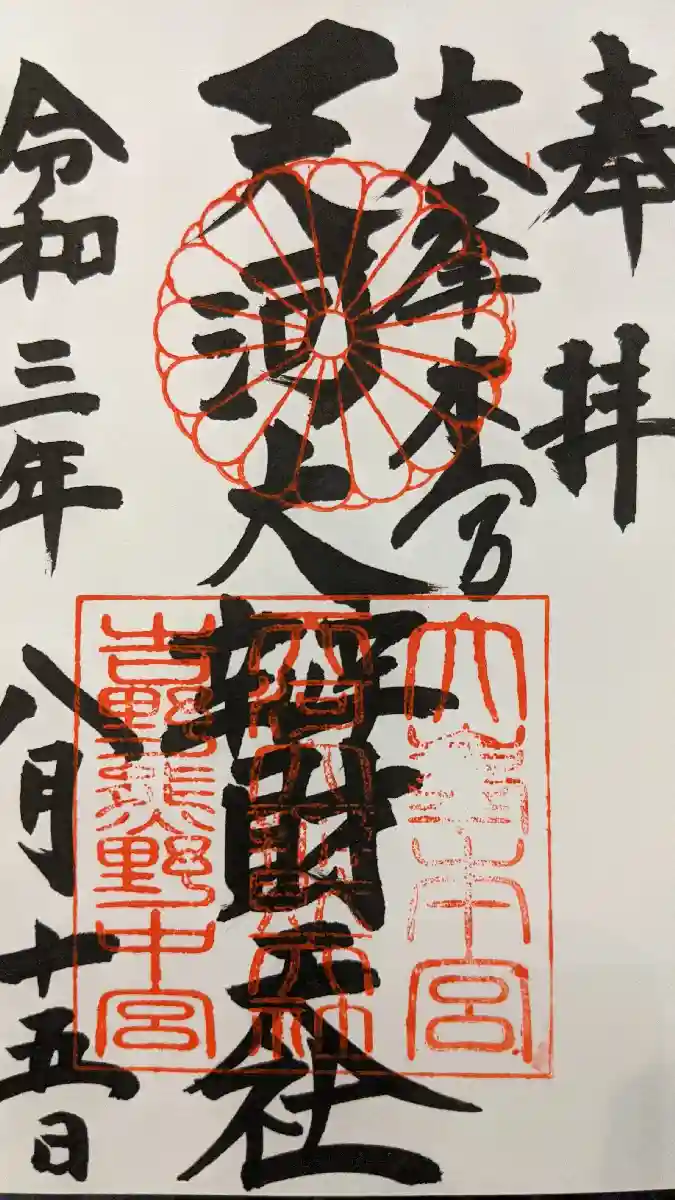 奉拝
大峯本宮
天河大辨財天社
令和三年八月十五日
大峯本宮
天河大辨財天社
吉野熊野中宮